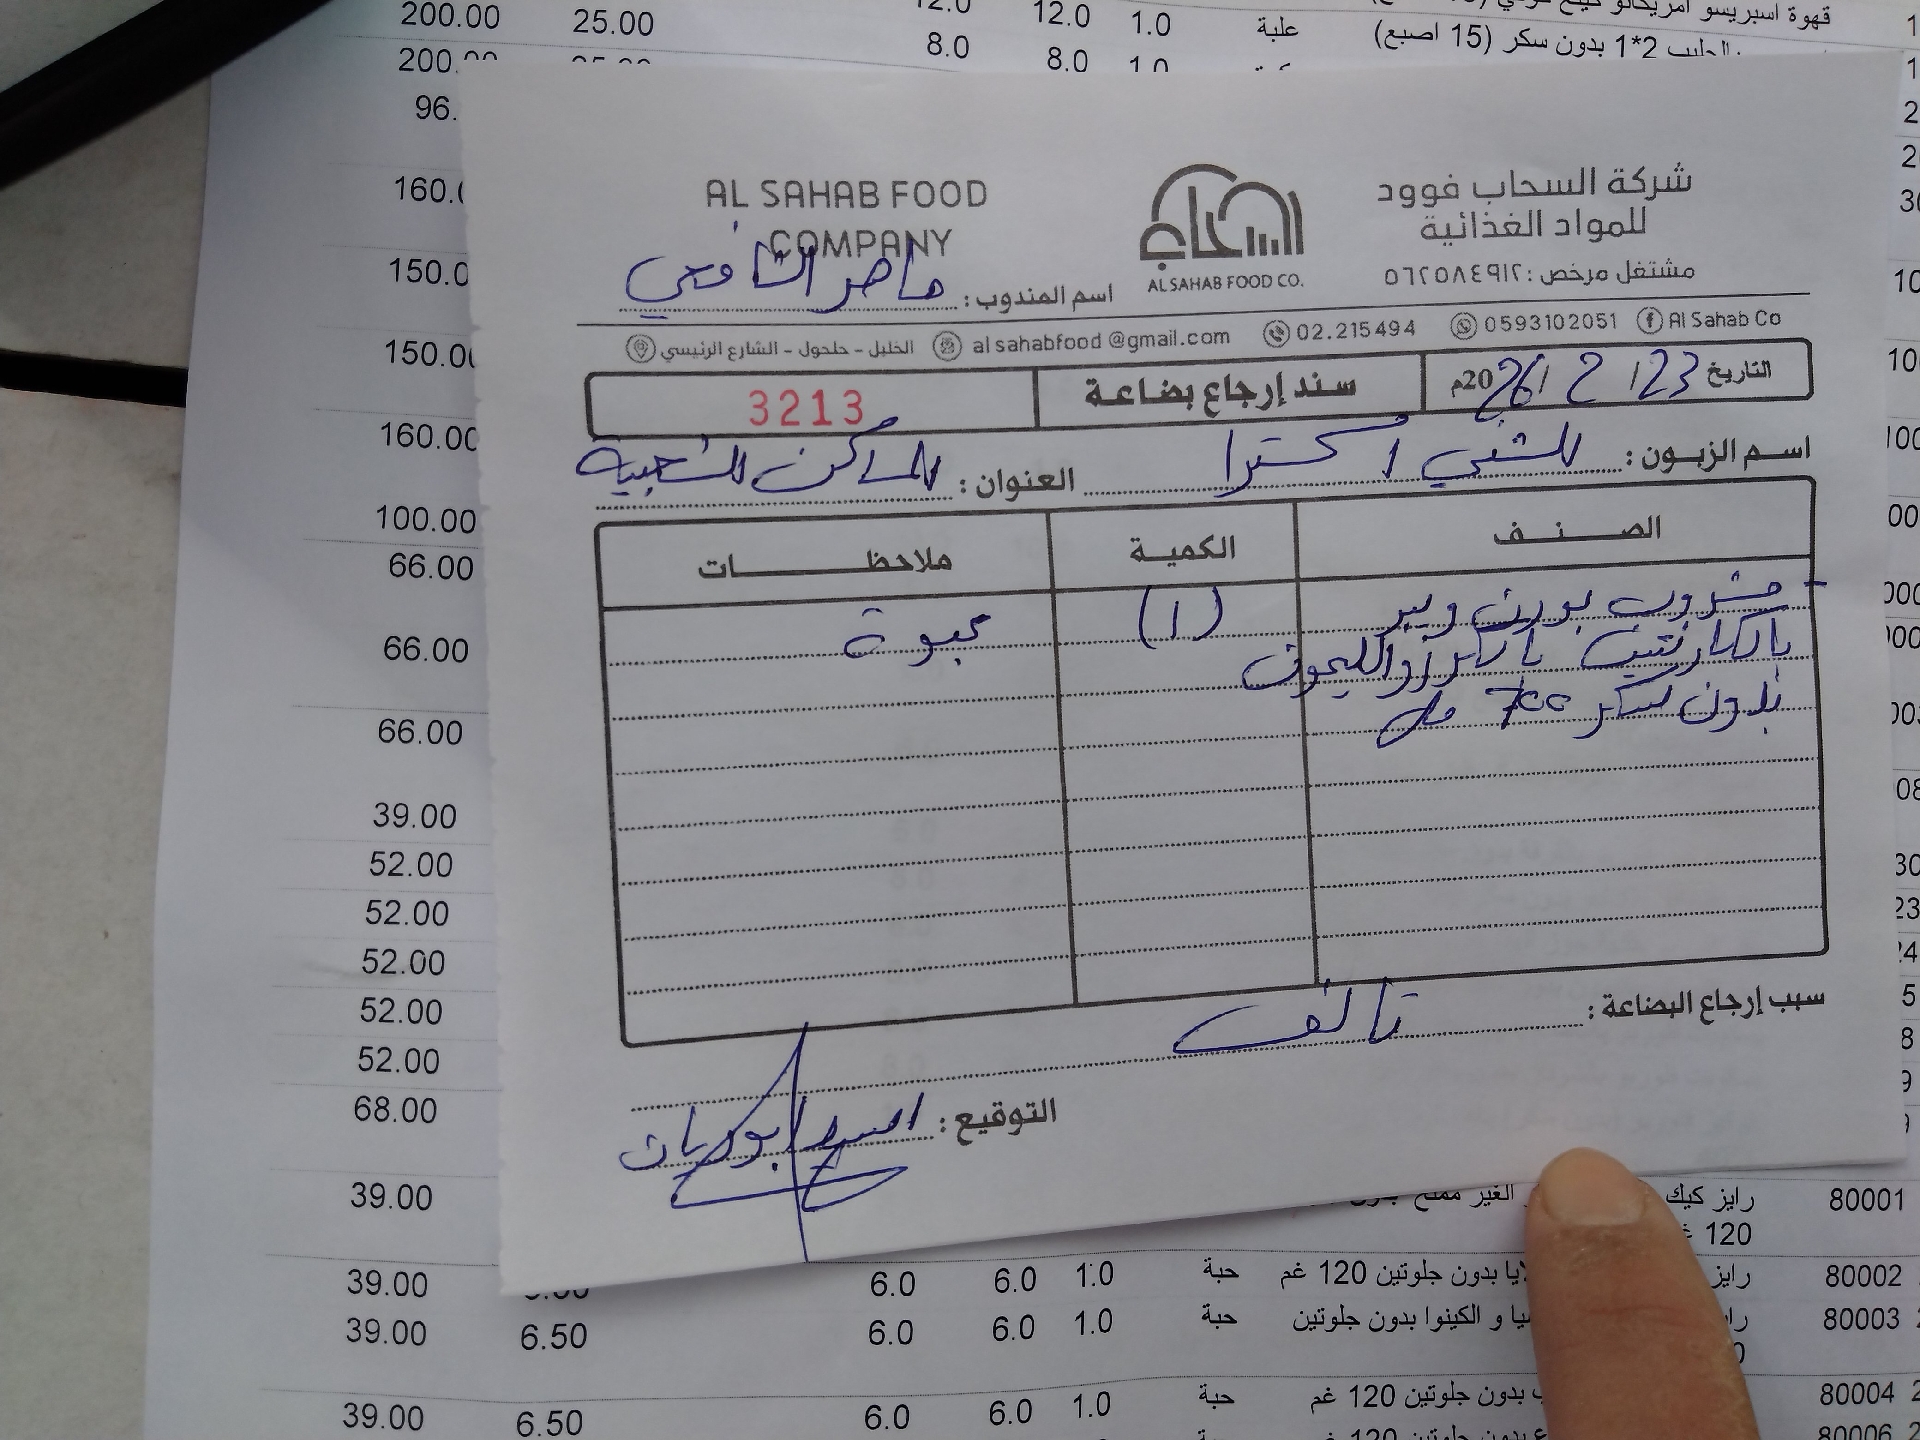 200.00 25.00 12.0 12.0 1.0 علبة قهوة اسبريسو
8.0 8.0 1.0 1*2 بدون سكر (15 اصبع)
96.
160.0
150.0
150.00
160.00
100.00
66.00
66.00
66.00
39.00
52.00
52.00
52.00
52.00
52.00
68.00
39.00
AL SAHAB FOOD
COMPANY
AL SAHAB FOOD CO.
شركة السحاب فوود
للمواد الغذائية
مشتغل مرخص : ٥٦٢٥٨٤٩١٢
اسم المندوب : ماهر الشافعي
Al Sahab Co 0593102051 02.215494 al sahabfood @gmail.com الخليل - حلحول - الشارع الرئيسي
التاريخ 23 / 2 / 2026م سند إرجاع بضاعة 3213
اسم الزبون : المثنى اكسترا العنوان : المساكن الشعبية
الصنف الكمية ملاحظات
- مشروب بورن ويبر (1) عبوة
بالكارنتين بالكرز والليمون
بدون سكر 700 مل
سبب إرجاع البضاعة : تالف
التوقيع :
رايز كيك الغير مملح 80001
120
80002 رايز بدون جلوتين 120 غم حبة 1.0 6.0 6.0 39.00
80003 و الكينوا بدون جلوتين حبة 1.0 6.0 6.0 6.50 39.00
80004 بدون جلوتين 120 غم حبة 1.0 6.0 6.0 6.50 39.00
80006 بدون جلوتين 120 غم